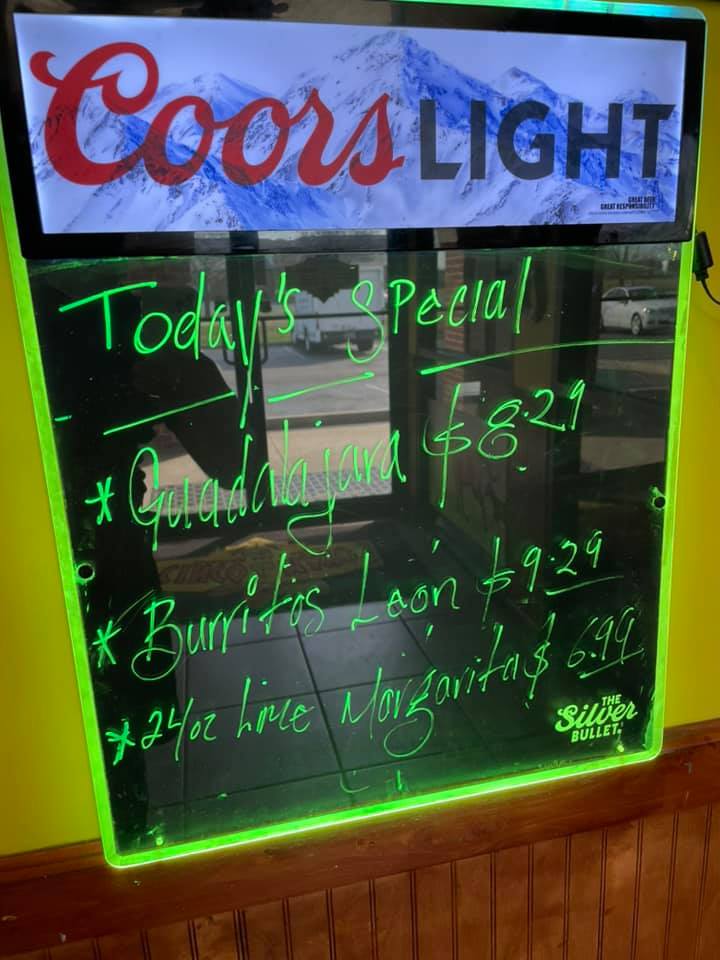 Coors LIGHT
GREAT BEER
GREAT RESPONSIBILITY
Today's Special
* Guadalajara $8.29
* Burritos León $9.29
* 24oz Lime Margaritas $6.99
THE
Silver
BULLET.